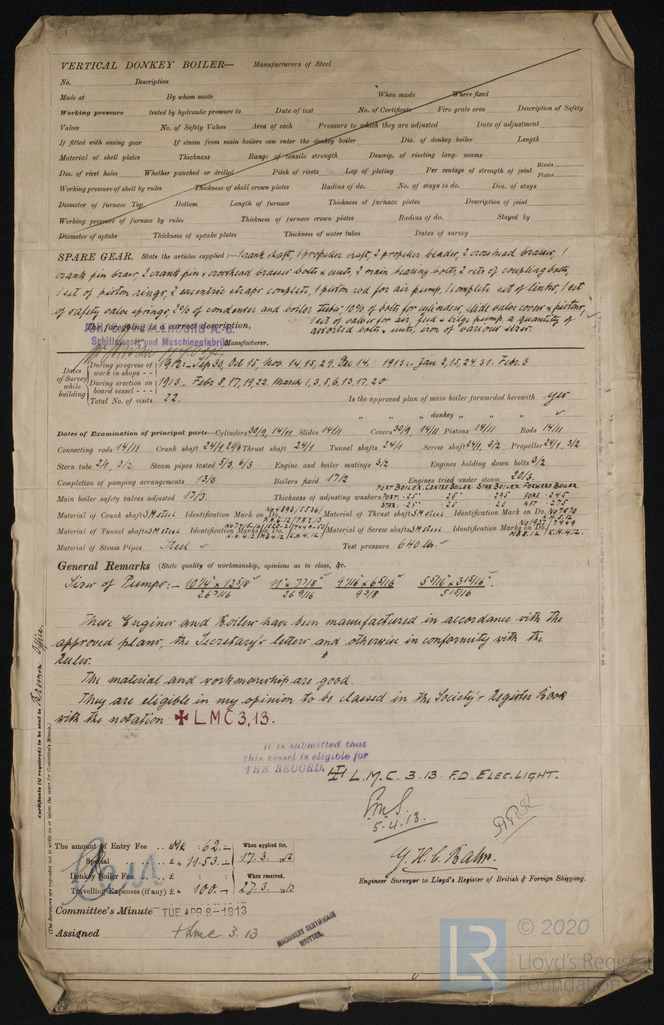 VERTICAL DONKEY BOILER— Manufacturers of Steel
No. Description
Made at By whom made When made Where fixed
Working pressure tested by hydraulic pressure to Date of test No. of Certificate Fire grate area Description of Safety
Valves No. of Safety Valves Area of each Pressure to which they are adjusted Date of adjustment
If fitted with easing gear If steam from main boilers can enter the donkey boiler Dia. of donkey boiler Length
Material of shell plates Thickness Range of tensile strength Descrip. of riveting long. seams
Dia. of rivet holes Whether punched or drilled Pitch of rivets Lap of plating Per centage of strength of joint Rivets Plates
Working pressure of shell by rules Thickness of shell crown plates Radius of do. No. of stays to do. Dia. of stays
Diameter of furnace Top Bottom Length of furnace Thickness of furnace plates Description of joint
Working pressure of furnace by rules Thickness of furnace crown plates Radius of do. Stayed by
Diameter of uptake Thickness of uptake plates Thickness of water tubes Dates of survey
SPARE GEAR. State the articles supplied:— 1 crank shaft, 1 propeller shaft, 2 propeller blades, 2 crosshead brasses, 1
crank pin brass, 2 crank pin & crosshead brasses bolts & nuts, 2 main bearing bolts, 2 sets of coupling bolts,
1 set of piston rings, 2 excentric straps complete, 1 piston rod for air pump, 1 complete set of links, 1 set
of safety valve springs, 2% of condenser and boiler tubes, 10% of bolts for cylinders, slide valve covers & pistons,
1 set of valves for air, feed & bilge pump, a quantity of
assorted bolts & nuts, iron of various sizes.
The foregoing is a correct description,
Schiffswerft und Maschinenfabrik Manufacturer.
Dates of Survey while building
During progress of work in shops - - 1912:- Sep 30, Oct 15, Nov. 14, 15, 29, Dec 14. 1913:- Jan 2, 15, 24, 31. Feb. 3
During erection on board vessel - - - 1913.- Feb 8, 17, 19, 22. March 1, 3, 5, 6, 13, 17, 20
Total No. of visits 22. Is the approved plan of main boiler forwarded herewith yes
" " " donkey " "
Dates of Examination of principal parts—Cylinders 30/9, 14/11 Slides 14/11 Covers 30/9, 14/11 Pistons 14/11 Rods 14/11
Connecting rods 14/11 Crank shaft 24/1 Thrust shaft 24/1 Tunnel shafts 24/1 Screw shaft 24/1, 3/2 Propeller 24/1, 3/2
Stern tube 2/1, 3/2 Steam pipes tested 5/3, 6/3 Engine and boiler seatings 3/2 Engines holding down bolts 3/2
Completion of pumping arrangements 13/3 Boilers fixed 17/2 Engines tried under steam 20/3
PORT BOILER. CENTRE BOILER. STAR BOILER. FORWARD BOILER.
Main boiler safety valves adjusted 17/3. Thickness of adjusting washers
Material of Crank shaft S M Steel Identification Mark on Do. Material of Thrust shaft S M Steel Identification Mark on Do. No 7570
Material of Tunnel shafts S M Steel Identification Marks on Do. Material of Screw shafts S M Steel Identification Marks on Do.
Material of Steam Pipes Steel Test pressure 640 lbs.
General Remarks (State quality of workmanship, opinions as to class, &c.
Sizes of Pumps:-
These Engines and Boilers have been manufactured in accordance with the
approved plans, the Secretary's letters and otherwise in conformity with the
Rules.
The material and workmanship are good.
They are eligible in my opinion to be classed in the Society's Register Book
with the notation ✠ L M C 3, 13.
It is submitted that
this vessel is eligible for
THE RECORD. L. M. C. 3. 13 F.D. ELEC. LIGHT.
5.4.13.
The amount of Entry Fee .. Mk : 62.- When applied for,
Special .. £ 1153.- 17.3. 13
Donkey Boiler Fee .. £ : : When received,
Travelling Expenses (if any) £ 100.- 27.3. 13
Engineer Surveyor to Lloyd's Register of British & Foreign Shipping.
Committee's Minute TUE. APR. 8 - 1913
Assigned + LMC 3. 13
MACHINERY CERTIFICATE
WRITTEN.
Certificate (if required) to be sent to
(The Surveyors are requested not to write on or below the space for Committee's Minute.)
LR
© 2020
Lloyd's Register
Foundation